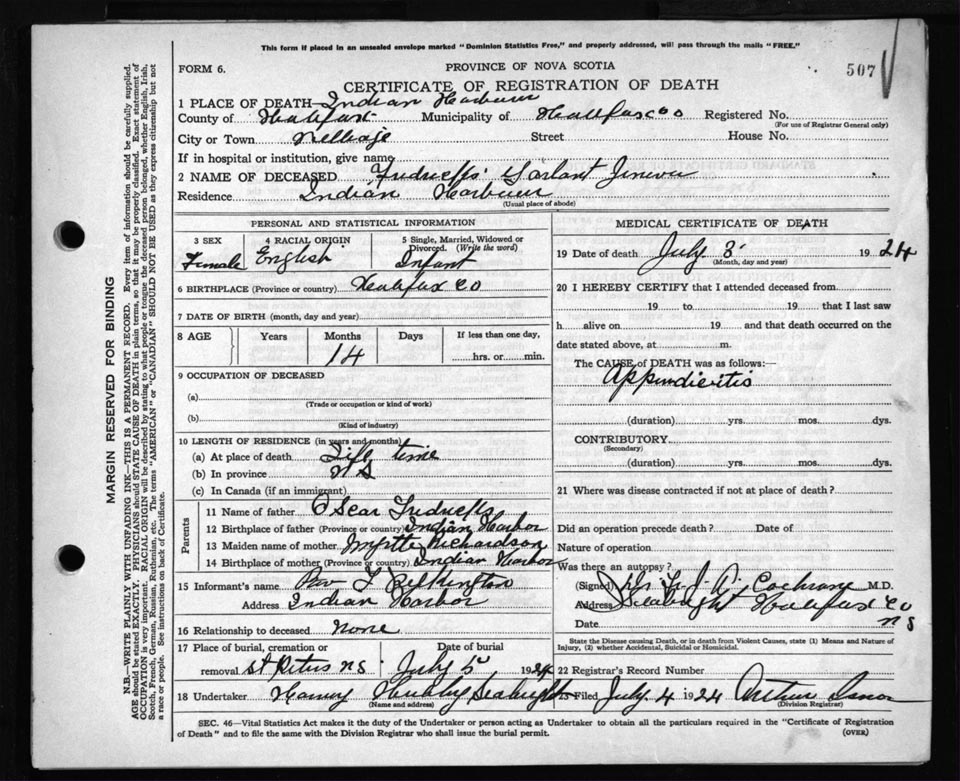 This form if placed in an unsealed envelope marked "Dominion Statistics Free," and properly addressed, will pass through the mails "FREE."
FORM 6.
PROVINCE OF NOVA SCOTIA
507
CERTIFICATE OF REGISTRATION OF DEATH
1 PLACE OF DEATH Indian Harbour
County of Halifax Municipality of Halifax Co Registered No.
(For use of Registrar General only)
City or Town Village Street House No.
If in hospital or institution, give name
2 NAME OF DECEASED
Residence Indian Harbour
(Usual place of abode)
PERSONAL AND STATISTICAL INFORMATION
3 SEX Female
4 RACIAL ORIGIN English
5 Single, Married, Widowed or Divorced. (Write the word) Infant
6 BIRTHPLACE (Province or country) Halifax Co
7 DATE OF BIRTH (month, day and year)
8 AGE Years Months Days If less than one day,
14 hrs. or min.
9 OCCUPATION OF DECEASED
(a)
(Trade or occupation or kind of work)
(b)
(Kind of industry)
10 LENGTH OF RESIDENCE (in years and months)
(a) At place of death Life time
(b) In province N S
(c) In Canada (if an immigrant)
Parents
11 Name of father Oscar
12 Birthplace of father (Province or country) Indian Harbor
13 Maiden name of mother Myrtle Richardson
14 Birthplace of mother (Province or country) Indian Harbor
15 Informant's name
Address Indian Harbor
16 Relationship to deceased None
17 Place of burial, cremation or removal St Peters N S
Date of burial July 5 1924
18 Undertaker Harvey Hubley Seabright
(Name and address)
MEDICAL CERTIFICATE OF DEATH
19 Date of death July 3 1924
(Month, day and year)
20 I HEREBY CERTIFY that I attended deceased from
19 to 19 that I last saw
h alive on 19 and that death occurred on the
date stated above, at m.
The CAUSE of DEATH was as follows:—
Appendicitis
(duration) yrs. mos. dys.
CONTRIBUTORY
(Secondary)
(duration) yrs. mos. dys.
21 Where was disease contracted if not at place of death?
Did an operation precede death? Date of
Nature of operation
Was there an autopsy?
(Signed) Cochrane M.D.
Address Seabright Halifax Co
Date N S
State the Disease causing Death, or in death from Violent Causes, state (1) Means and Nature of Injury, (2) whether Accidental, Suicidal or Homicidal.
22 Registrar's Record Number
23 Filed July 4 1924 Arthur
(Division Registrar)
SEC. 46—Vital Statistics Act makes it the duty of the Undertaker or person acting as Undertaker to obtain all the particulars required in the "Certificate of Registration
of Death" and to file the same with the Division Registrar who shall issue the burial permit.
(OVER)
MARGIN RESERVED FOR BINDING
N.B.—WRITE PLAINLY WITH UNFADING INK—THIS IS A PERMANENT RECORD. Every item of information should be carefully supplied.
AGE should be stated EXACTLY. PHYSICIANS should STATE CAUSE OF DEATH in plain terms, so that it may be properly classified. Exact statement of
OCCUPATION is very important. RACIAL ORIGIN will be described by stating to what people or tongue the deceased person belonged, whether English, Irish,
Scotch, French, German, Russian, Ruthenian, etc. The terms "AMERICAN" or "CANADIAN" SHOULD NOT BE USED as they express citizenship but not
a race or people. See instructions on back of Certificate.